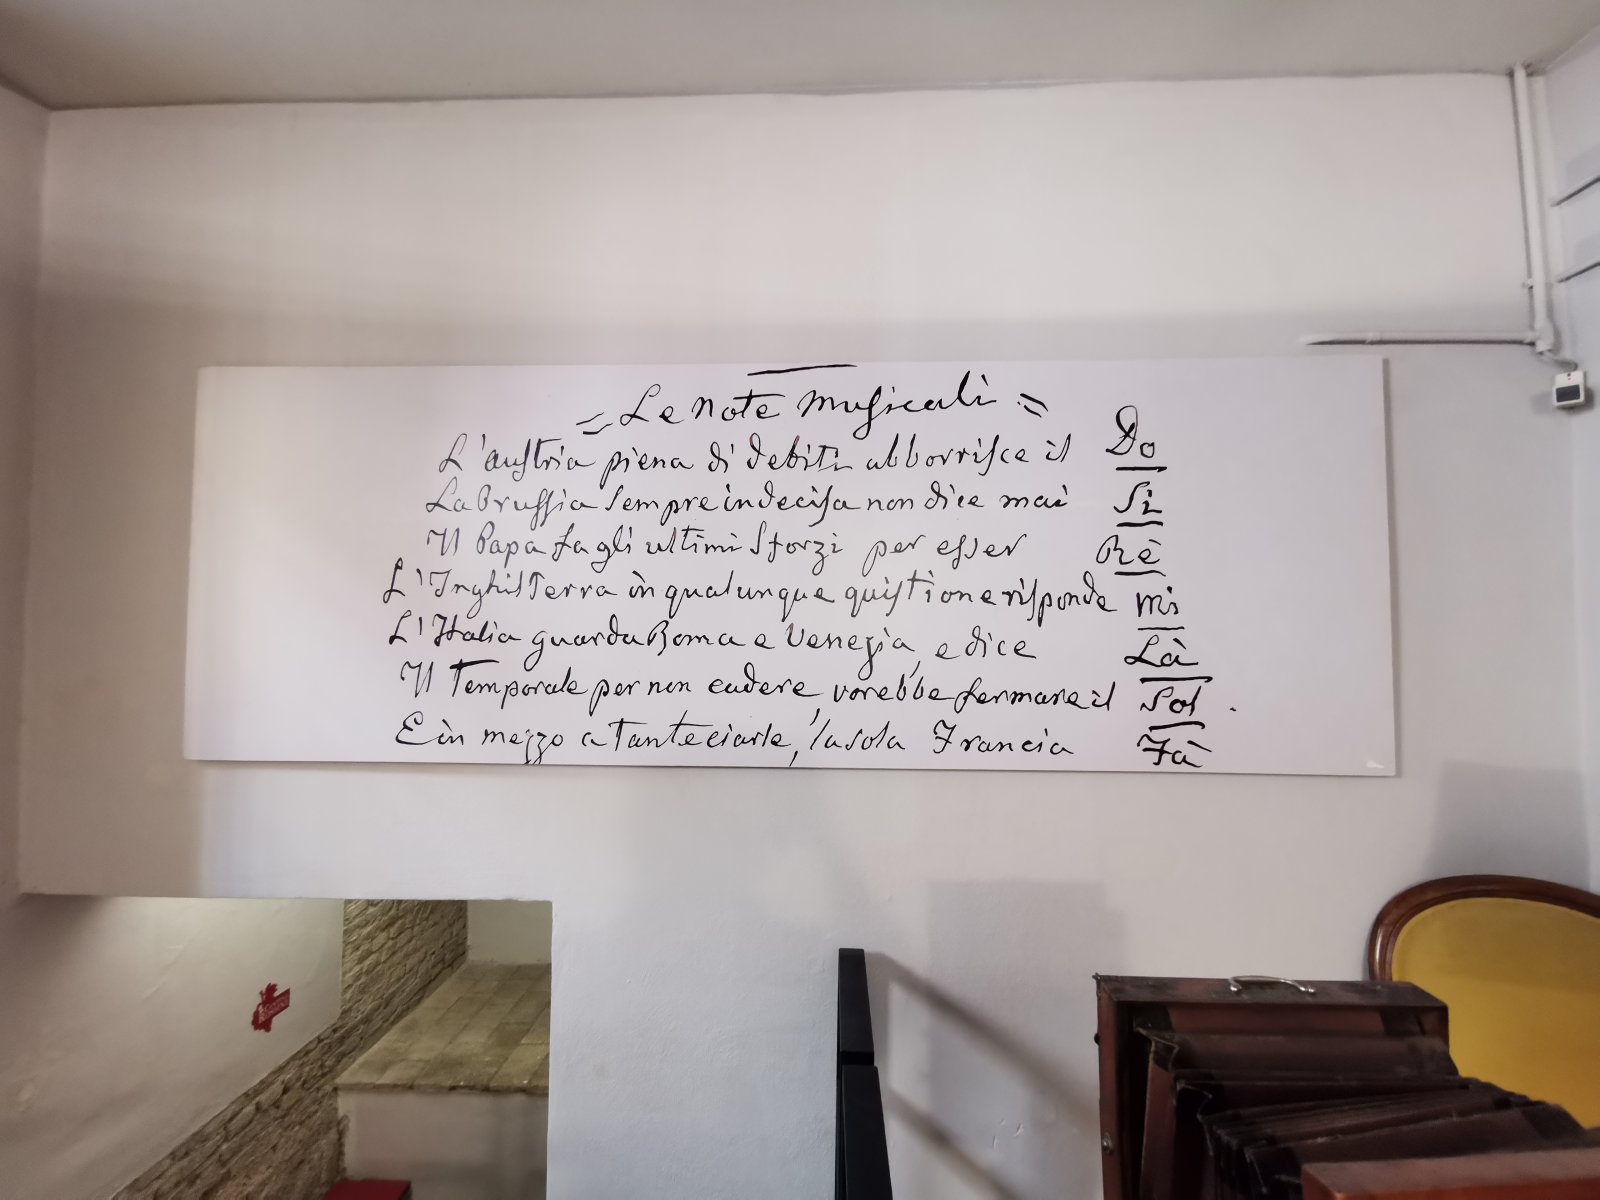 = Le Note Musicali =
L'austria piena di debiti abborrisce il Do
La Prussia sempre indecisa non dice mai Si
Il Papa fa gli ultimi sforzi per esser Rè
L'Inghilterra in qualunque quistione risponde Mi
L'Italia guarda Roma e Venezia, e dice Là
Il Temporale per non cadere, vorebbe fermare il Sol.
E in mezzo a tante ciarle, la sola Francia Fà